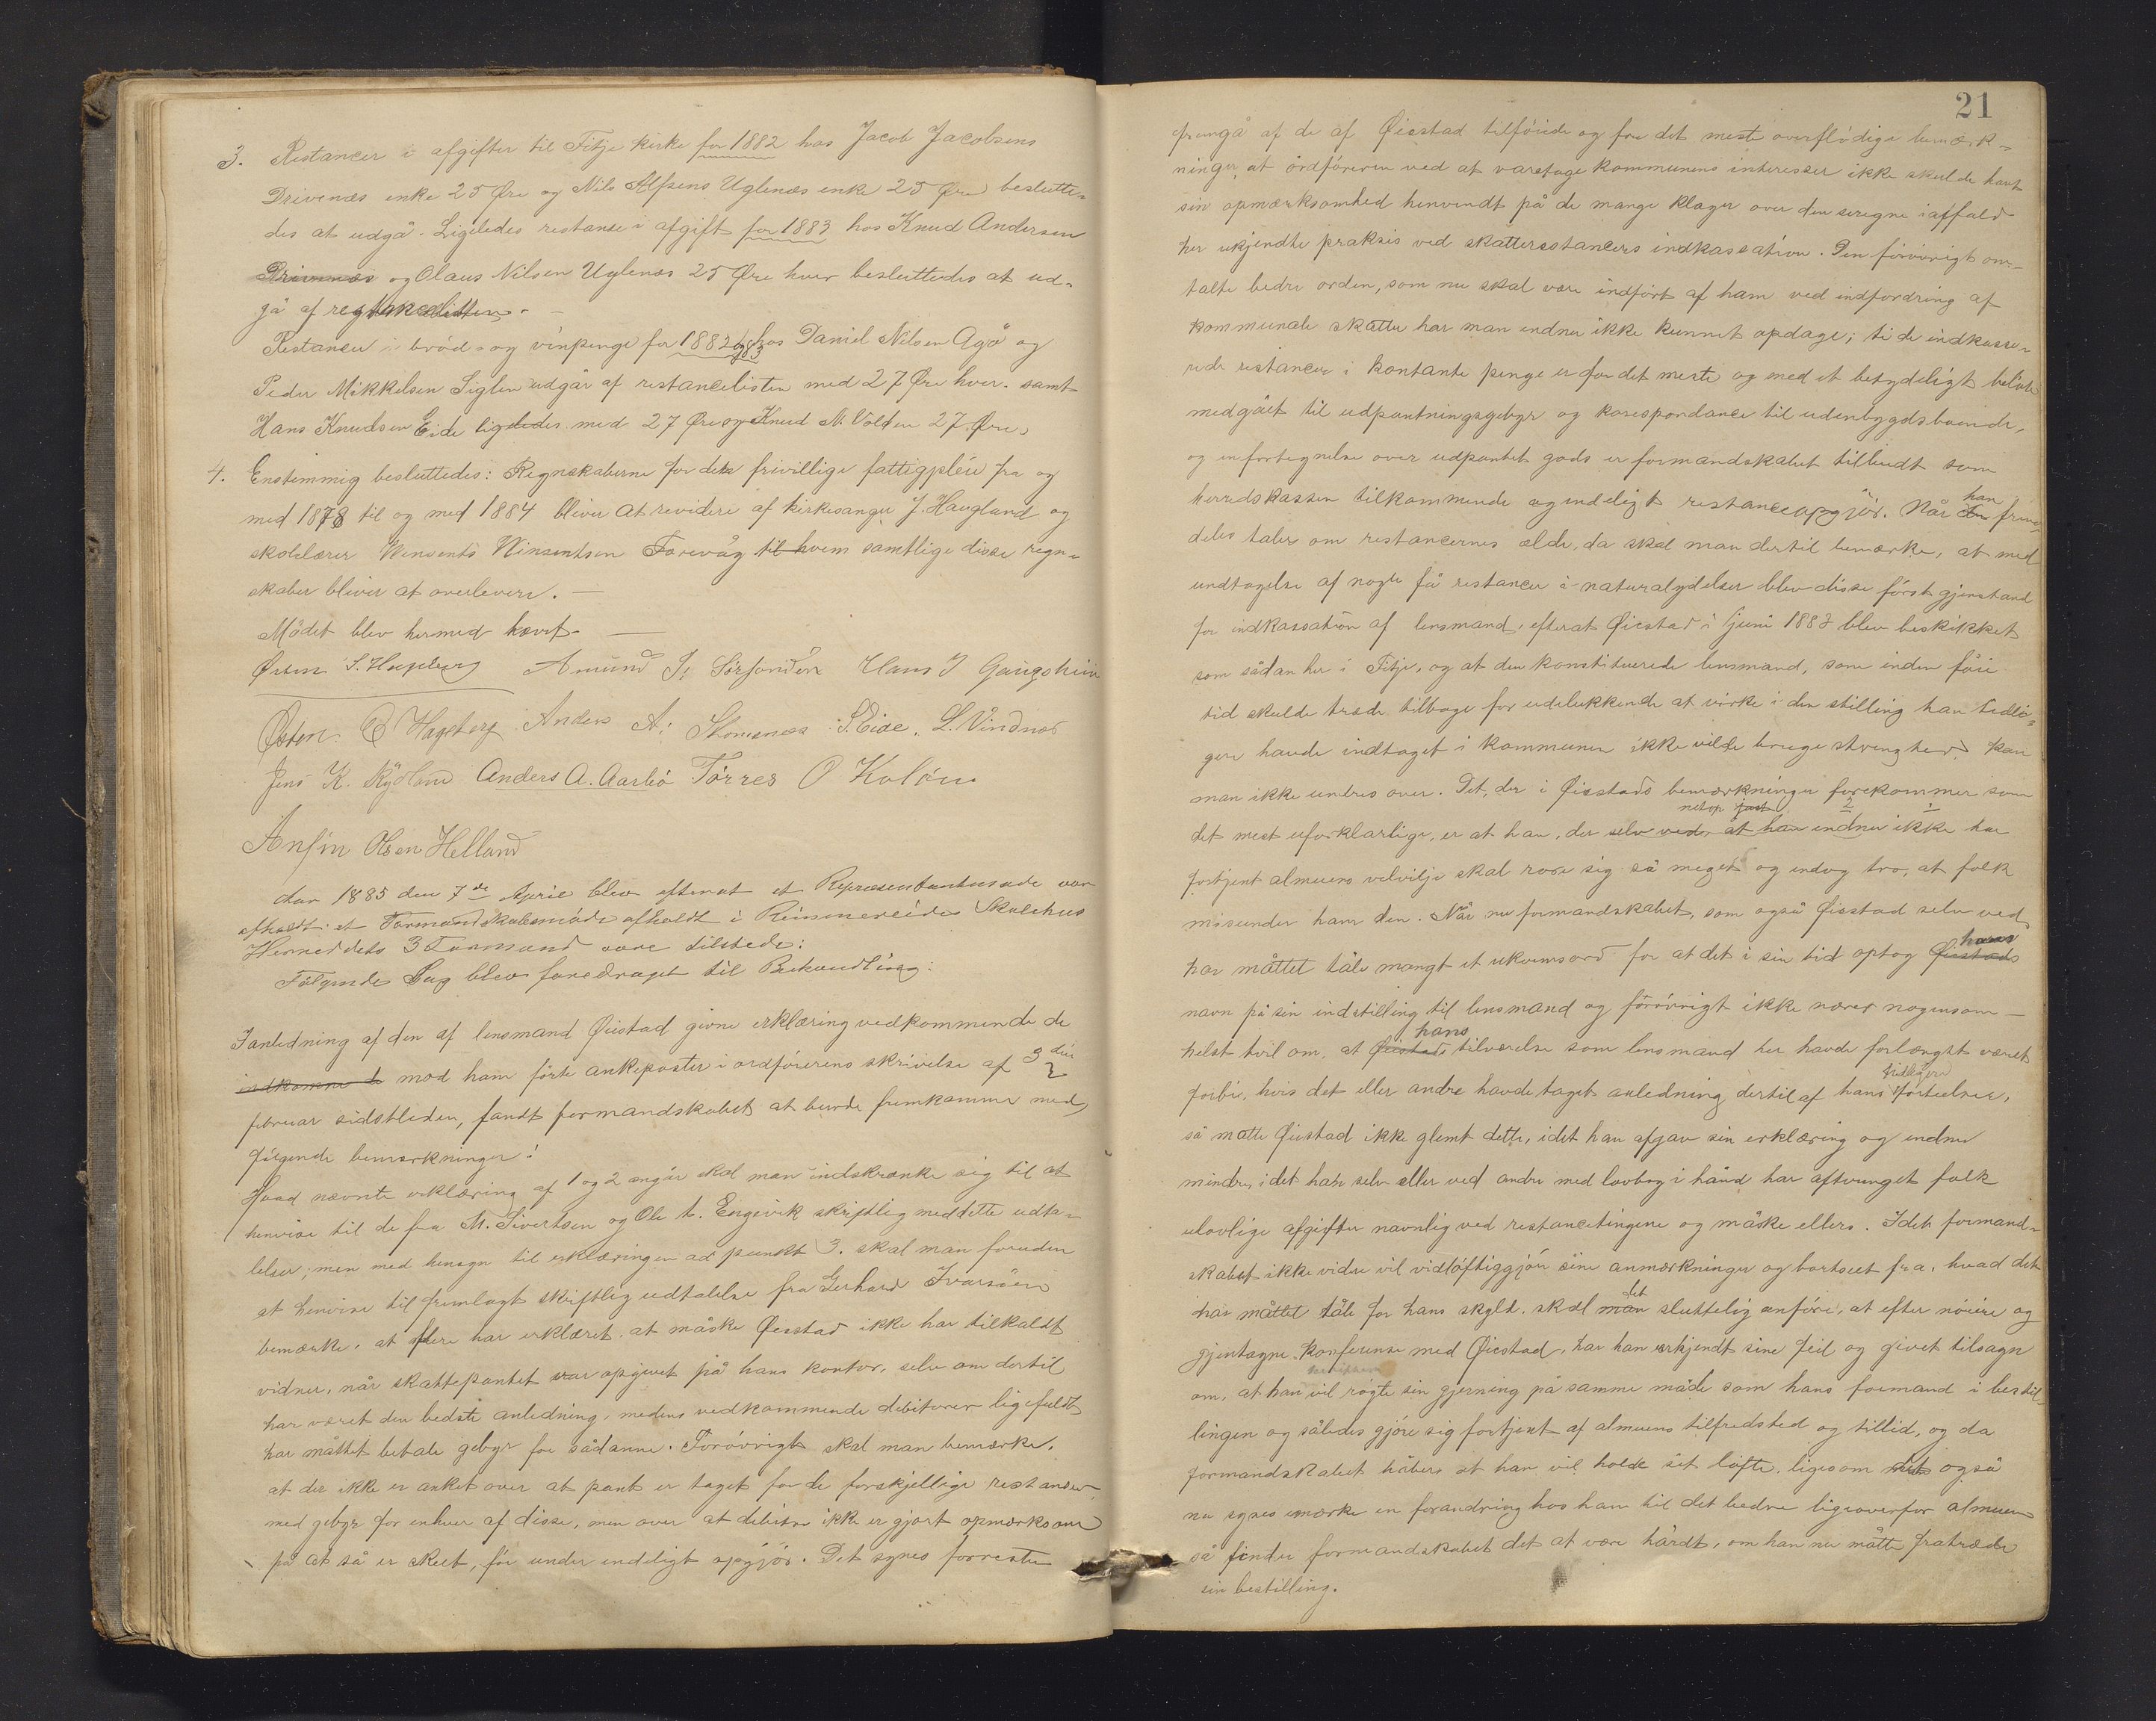 3. Restancer i afgifter til Fitje kirke for 1882 hos Jacob Jacobsens
Drivenæs enke 25 Øre og Nils Alfsens Uglenæs enke 25 Øre beslutte-
des at udgå. Ligeledes restanse i afgift for 1883 hos Knud Andersen
Drivenæs og Olaus Nilsen Uglenæs 25 Øre hver besluttedes at ud-
gå af restancelisten. —
Restancer i bröd- og vinpenge for 1882 og 83 hos Daniel Nilsen Agö og
Peder Mikkelsen Siglen udgår af restancelisten med 27 Øre hver. samt
Hans Knudsen Eide ligeledes med 27 Øre og Knud N. Volden 27 Øre.
4. Enstemmig besluttedes: Regnskaberne for den frivillige fattigpleie fra og
med 1878 til og med 1884 bliver at revidere af kirkesanger J. Haugland og
skolelærer Vinsents Vinsentsen Farevåg til hvem samtlige disse regn-
skaber bliver at overlevere. —
Mödet blev hermed hævet. —
Østen S. Hageberg Amund S. Sörfonden Hans J Gaugstein
Østen Ø Hageberg Anders A. Stomenæs S. Eide. L. Vindnæs
Jens K. Rydland Anders A. Aarbö Törres O Koløen
Anfin Olsen Helland
Aar 1885 den 7de April blev efterat et Repræsentantmøde var
afholdt et Formandskabsmöde afholdt i Rimmereides Skolehus
Herreddets 3 Formænd vare tilstede:
Fölgende Sag blev foredraget til Behandling:
I anledning af den af lensmand Øiestad givne erklæring vedkommende de
indkomne de mod ham förte ankeposter i ordförerens skrivelse af 3die
februar sidstleden, fandt formandskabet at burde fremkomme med
fölgende bemærkninger:
Hvad nævnte erklæring af 1 og 2 angår skal man indskrænke sig til at
henvise til de fra M. Sivertsen og Ole A. Engevik skriftlig meddelte udta-
lelser; men med hensyn til erklæringen ad punkt 3. skal man foruden
at henvise til fremlagt skriftlig udtalelse fra Gerhard Ivarsöen
bemærke, at flere har erklæret, at måske Øiestad ikke har tilkaldt
vidner, når skattepantet var opgivet på hans kontor, selv om dertil
har været den bedste anledning, medens vedkommende debitorer ligefuldt
har måttet betale gebyr for sådanne. Forövrigt skal man bemærke,
at der ikke er anket over at pant er taget for de forskjellige restanser
med gebyr for enhver af disse, men over at debitor ikke er gjort opmærksom
på at så er skeet, för under endeligt opgjör. Det synes forresten
21
fremgå af de af Øiestad tilföiede og for det meste overflödige bemærk-
ninger, at ordföreren ved at varetage kommunens interesser ikke skulde havt
sin opmærksomhed henvendt på de mange klager over den seregne iaffald
her ukjendte praksis ved skatterestancers indkassation. Den forövrigt om-
talte bedre orden, som nu skal være indfört af ham ved indfordring af
kommunale skatter har man endnu ikke kunnet opdage; ti de indkasse-
rede restancer i kontante penge er for det meste og med et betydeligt belöb
medgået til udpantningsgebyr og korespondance til udenbygdsboende,
og en fortegnelse over udpantet gods er formandskabet tilbudt som
herredskassen tilkommende og endeligt restanceopgjör. Når han frem-
deles taler om restancernes ælde, da skal man dertil bemærke, at med
undtagelse af nogle få restancer i naturalydelser blev disse först gjenstand
for indkassation af lensmand, efterat Øiestad i juni 1883 blev beskikket
som sådan her i Fitje, og at den konstituerede lensmand, som inden föie
tid skulde træde tilbage for udelukkende at virke i den stilling han tidli-
gere havde indtaget i kommunen ikke vilde bruge strenghed kan
man ikke undres over. Det, der i Øiestads bemærkninger forekommer som
netop just
det mest uforklarlige, er at han, der selv ved, at han endnu ikke har
fortjent almuens velvilje skal rose sig så meget og endog tro, at folk
misunder ham den. Når nu formandskabet, som også Øiestad selv ved
har måttet tåle mangt et ukvemsord for at det i sin tid optog Øiestads hans
navn på sin indstilling til lensmand og forövrigt ikke nærer nogensom-
helst tvil om, at Øiestads hans tilværelse som lensmand her havde forlængst været
forbi, hvis det eller andre havde taget anledning dertil af hans tidligere forteelser,
så måtte Øiestad ikke glemt dette, idet han afgav sin erklæring og endnu
mindre, idet han selv eller ved andre med lovbog i hånd har aftvunget folk
ulovlige afgifter navnlig ved restancetingene og måske ellers. Idet formand-
skabet ikke videre vil vidlöftiggjöre sine anmærkninger og bortseet fra, hvad det
har måttet tåle for hans skyld, skal man det sluttelig anföre, at efter nöiere og
gjentagne konferense med Øiestad, har han erkjendt sine feil og givet tilsagn
om, at han vil rögte sin gjerning på samme måde som hans formand i bestil-
lingen og således gjöre sig fortjent af almuens tilfredshed og tillid, og da
formandskabet håbers at han vil holde sit löfte, ligesom det også
nu synes mærke en forandring hos ham til det bedre ligeoverfor almuen
så finder formandskabet det at være hårdt, om han nu måtte fratræde
sin bestilling.